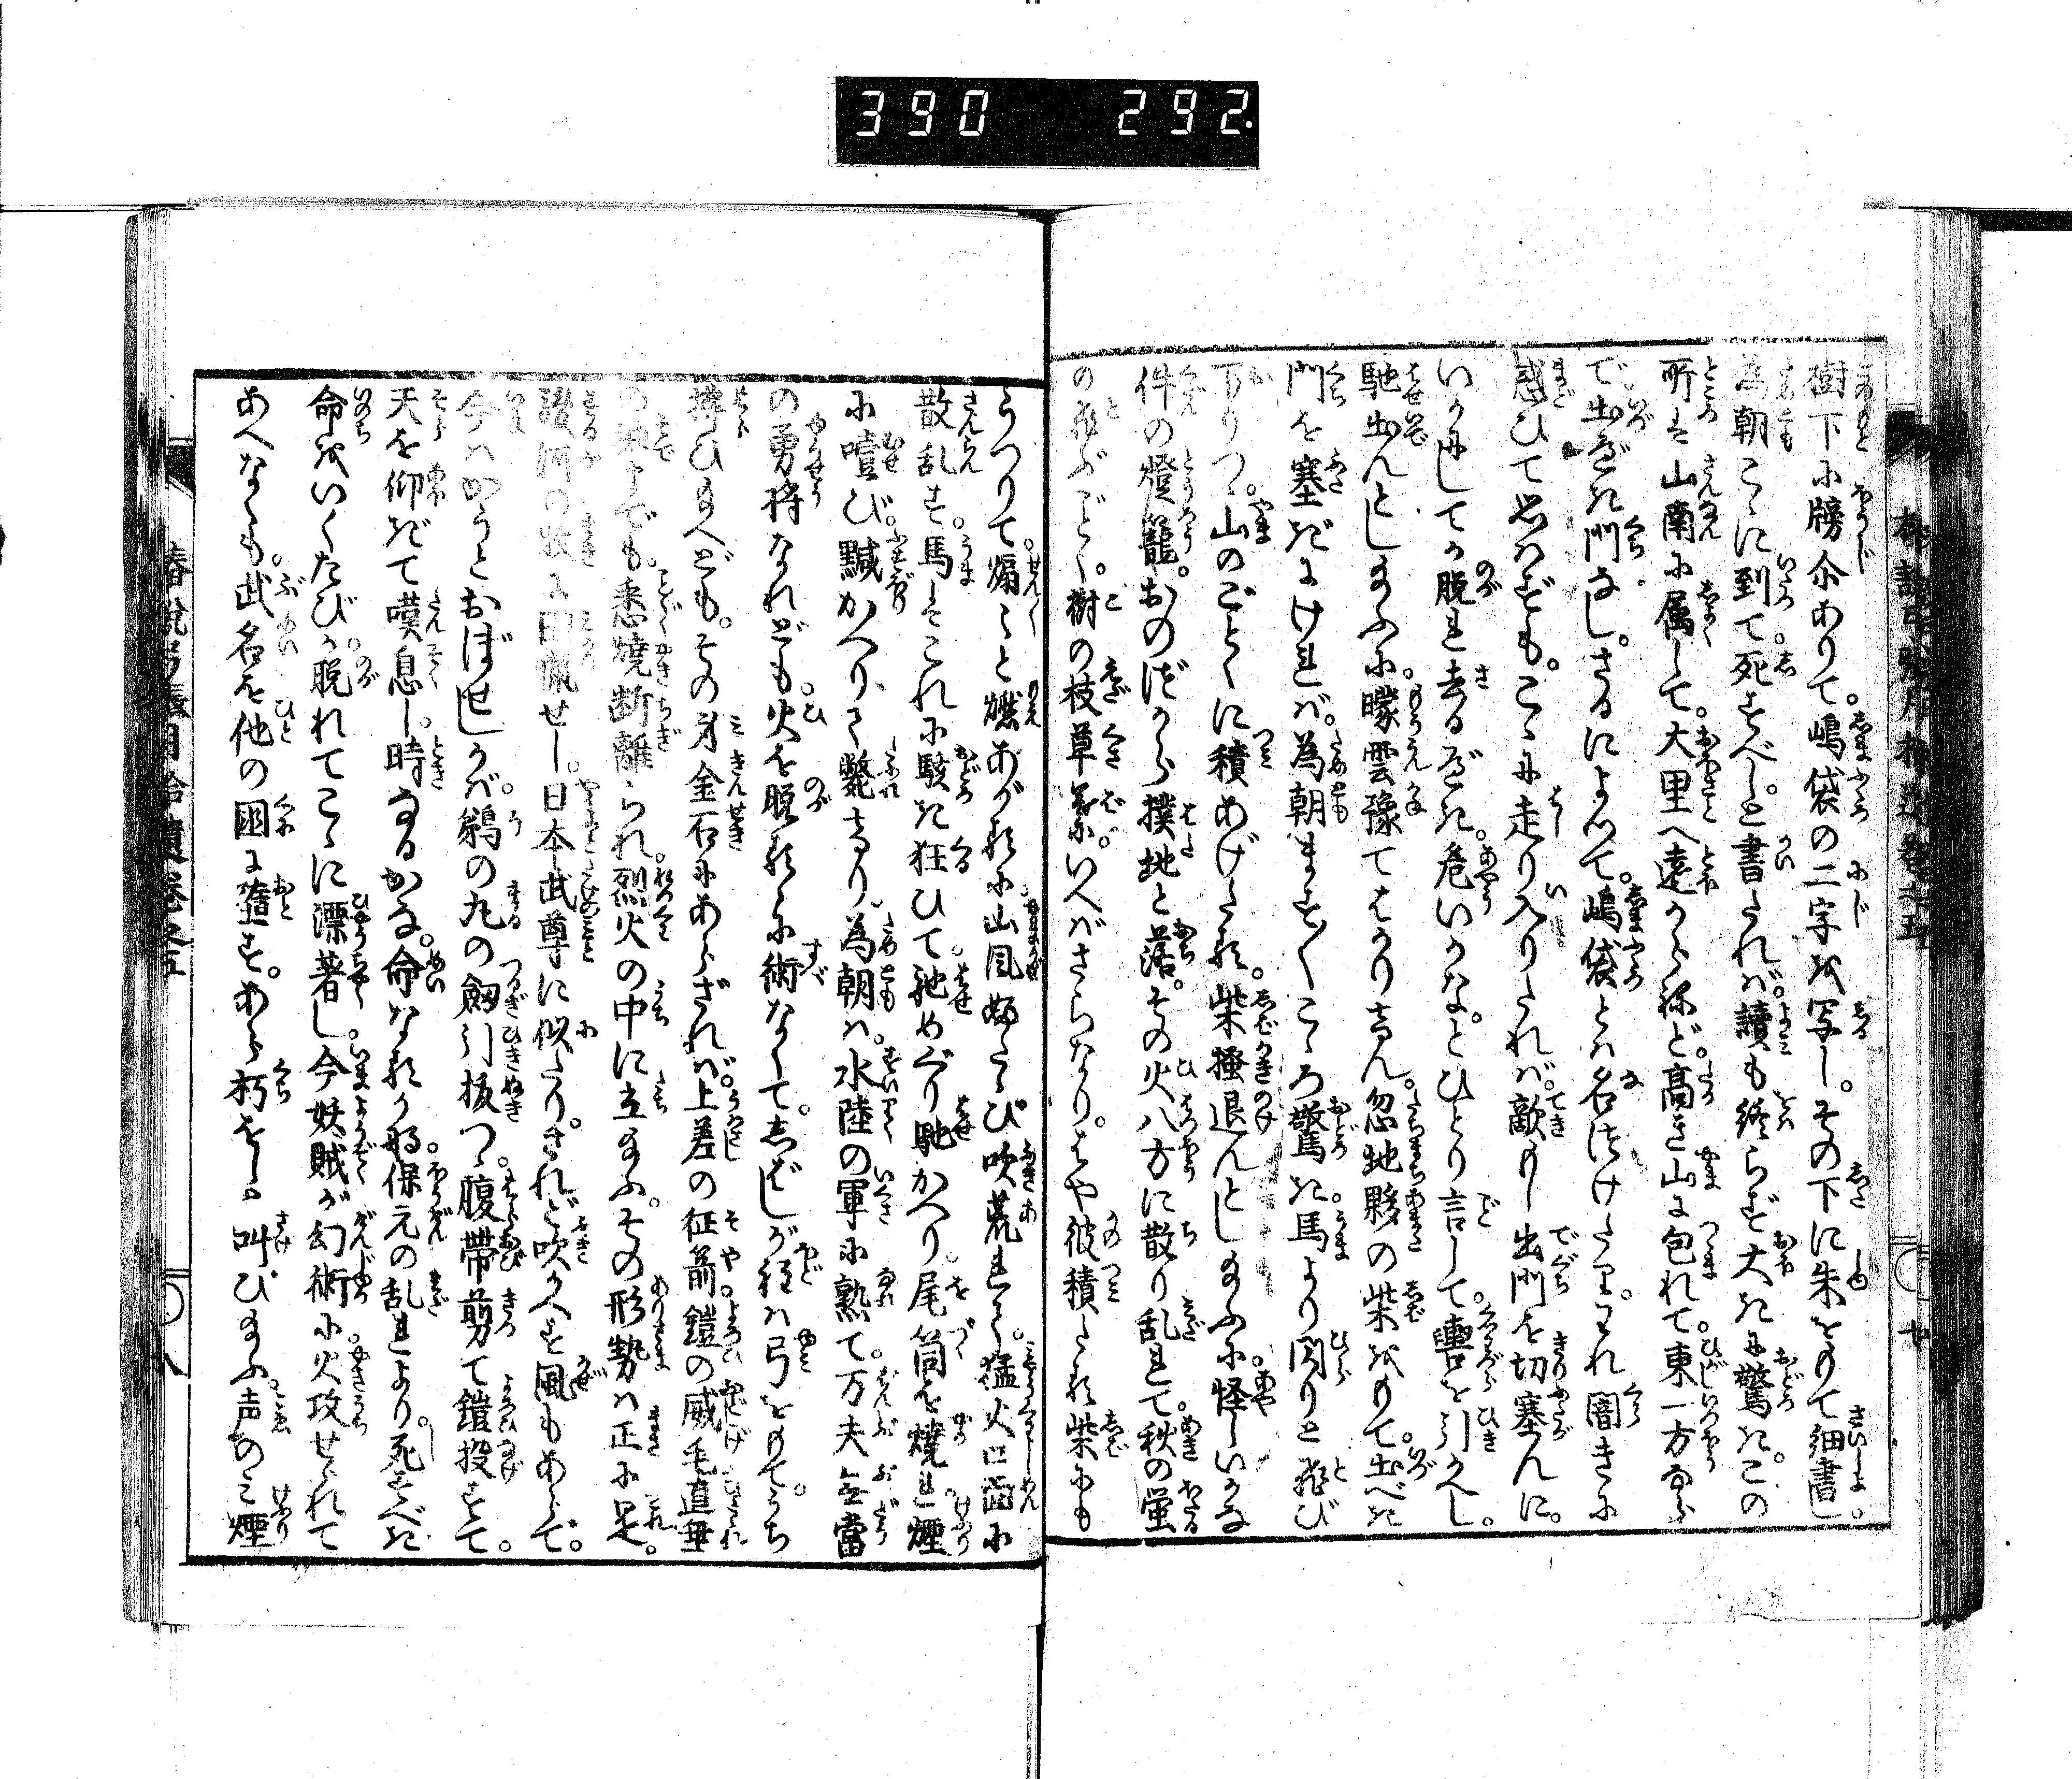 390 292.
樹下に牓示ありて。嶋袋の二字を写し。その下に朱をもて細書し。
為朝こゝに到て死すべし。と書たれば。讀も終らず大きに驚き。この
所は山南に属して。大里へ遠からねど。高き山に包れて。東一方ならで
出べき門なし。さるによつて。嶋袋とは名つけたり。われ闇きに
惑ひて思はずも。こゝに走り入りたれば。敵もし出門を切塞んに。
いかにしてか脱れ去るべき。危いかな。とひとり言して。轡を引かへし。
馳出んとし給ふに。曚雲豫てはかりけん。忽地夥の柴をもて。出べき
門を塞ぎにければ。為朝ますますこゝろ驚き。馬より閃りと飛び
下りつ。山のごとくに積あげたる。柴掻退んとし給ふに。怪しいかな
件の燈籠。おのづから撲地と落。その火八方に散り乱れて。秋の螢
の飛ぶごとく。樹の枝草葉。いへばさらなり。はや彼積たる柴にも
うつりて。煽々と燃あがるに。山風ふたゝび吹荒れて。猛火四面に
散乱す。馬はこれに駭き狂ひて。馳めぐり馳かへり。尾筒を燒れ。煙
に噎び。黬かへりて斃けり。為朝は。水陸の軍に熟て。万夫無當
の勇将なれども。火を脱るゝに術なくて。しばしが程は弓をもて。うち
拂ひ給へども。その身金石にあらざれば。上差の征箭。鎧の威毛直垂
の袖までも。悉燒断離られ。烈火の中に立給ふ。その形勢は正に是。
駿河の牧に田猟せし。日本武尊に似たり。されど吹かへす風もあらで。
今はかうとおぼせしかば。鵜の丸の劔引抜つ。腹帶剪て鎧投すて。
天を仰ぎて嘆息し。時なるかな。命なるかな。保元の乱れより。死すべき
命をいくたびか。脱れてこゝに漂著し。今妖賊が幻術に。火攻せられて
あへなくも。武名を他の國に墮す。あら朽をし。と叫び給ふ声のみ煙
椿說弓張月拾遺卷之五
八